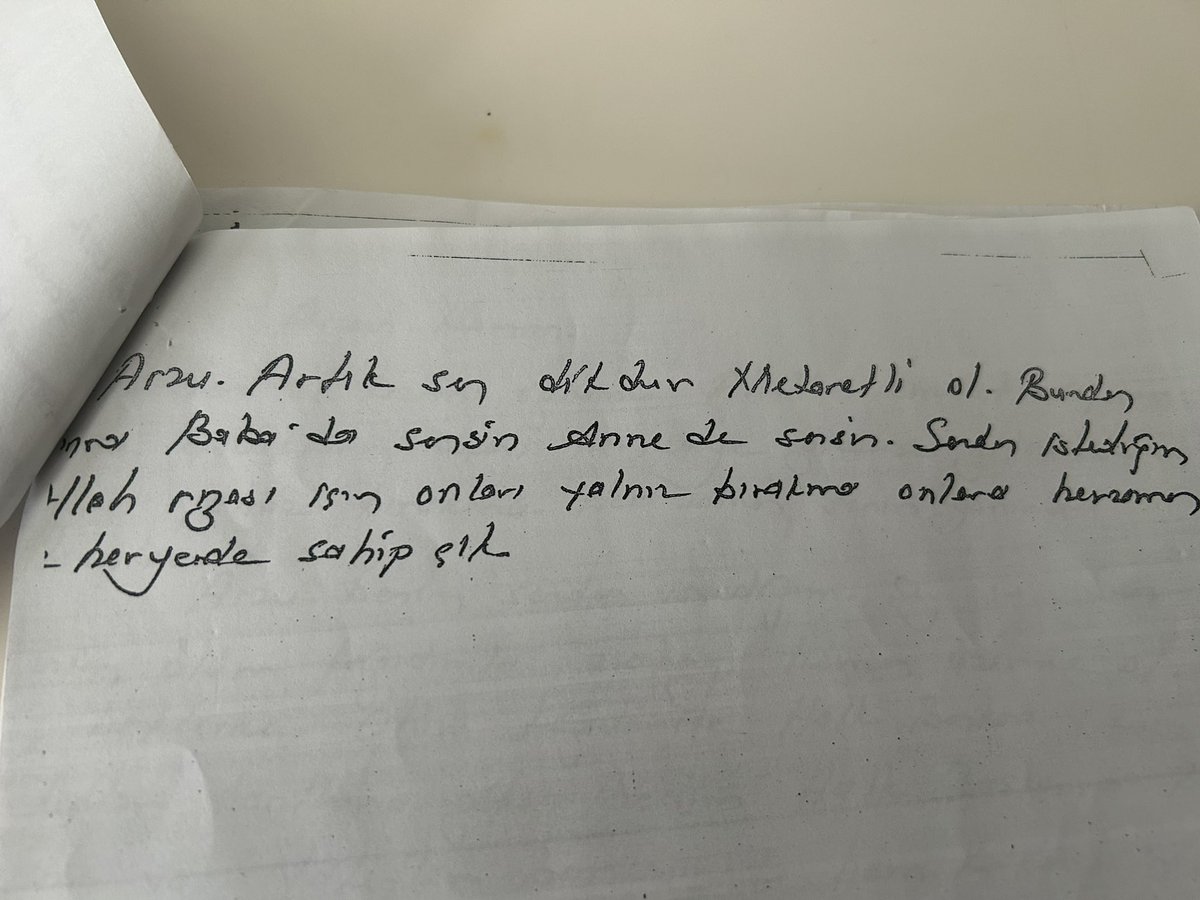 Arzu. Artık sen dik dur Metanetli ol. Bundan
sonra Baba'da sensin Anne de sensin. Senden istediğim
Allah rızası için onları yalnız bırakma onlara herzaman
- heryerde sahip çık